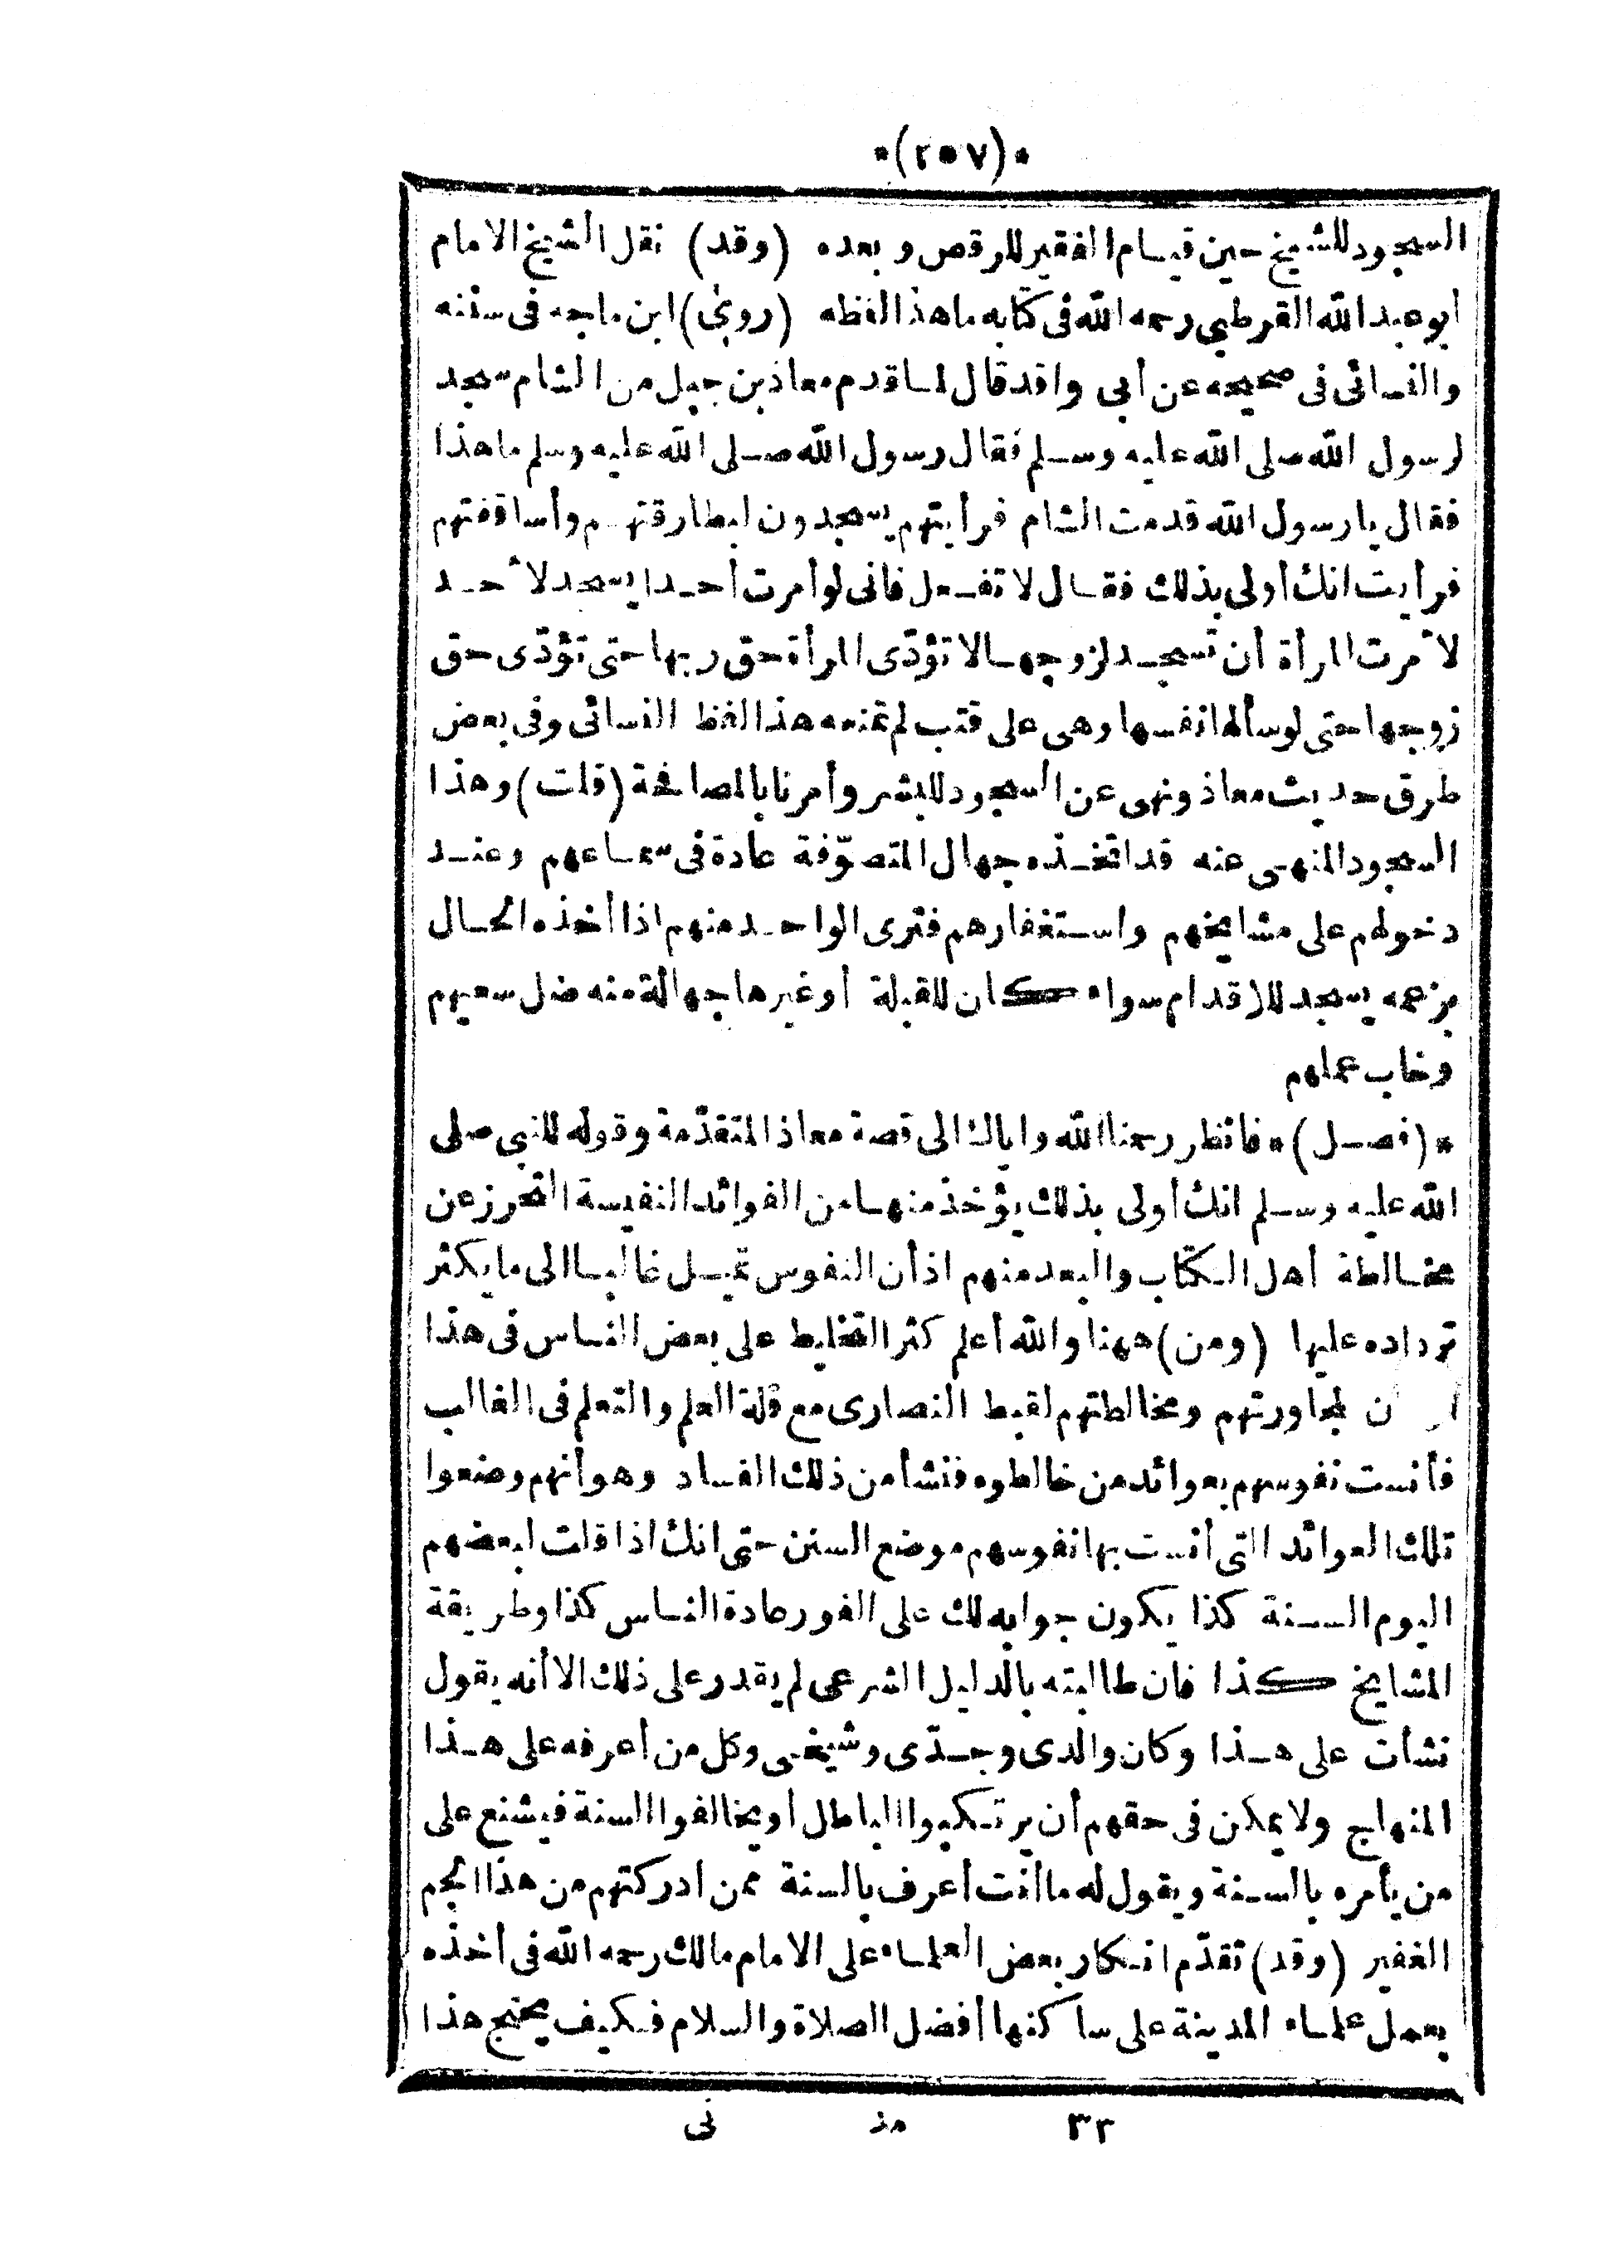 *(٢٥٧)*
السجود للشيخ حين قيام الفقير للرقص وبعده (وقد) نقل الشيخ الامام
أبو عبد الله القرطبي رحمه الله فى كتابه ما هذا لفظه (روى) ابن ماجه فى سننه
والنسائى فى صحيحه عن أبى واقد قال لما قدم معاذ بن جبل من الشام سجد
لرسول الله صلى الله عليه وسلم فقال رسول الله صلى الله عليه وسلم ما هذا
فقال يا رسول الله قدمت الشام فرأيتهم يسجدون لبطارقتهم وأساقفتهم
فرأيت انك أولى بذلك فقال لا تفعل فانى لو أمرت أحدا يسجد لأحد
لأمرت المرأة أن تسجد لزوجها لا تؤدّى المرأة حق ربها حتى تؤدّى حق
زوجها حتى لو سألها نفسها وهى على قتب لم تمنعه هذا لفظ النسائى وفى بعض
طرق حديث معاذ ونهى عن السجود للبشر وأمرنا بالمصافحة (قلت) وهذا
السجود المنهى عنه قد اتخذه جهال المتصوّفة عادة فى سماعهم وعند
دخولهم على مشايخهم واستغفارهم فترى الواحد منهم اذا أخذه الحال
بزعمه يسجد للاقدام سواء كان للقبلة أو غيرها جهالة منه ضل سعيهم
وخاب عملهم
*(فصل)* فانظر رحمنا الله واياك الى قصة معاذ المتقدّمة وقوله للنبى صلى
الله عليه وسلم انك أولى بذلك يؤخذ منها من الفوائد النفيسة التحرز عن
مخالطة أهل الكتاب والبعد منهم اذ أن النفوس تميل غالبا الى ما يكثر
ترداده عليها (ومن) ههنا والله أعلم كثر التخليط على بعض الناس فى هذا
ن لمجاورتهم ومخالطتهم لقبط النصارى مع قلة العلم والتعلم فى الغالب
فأنست نفوسهم بعوائد من خالطوه فنشأ من ذلك الفساد وهو أنهم وضعوا
تلك العوائد التى أنست بها نفوسهم موضع السنن حتى انك اذا قلت لبعضهم
اليوم السنة كذا يكون جوابه لك على الفور عادة الناس كذا وطريقة
المشايخ كذا فان طالبته بالدليل الشرعى لم يقدر على ذلك الا أنه يقول
نشأت على هذا وكان والدى وجدّى وشيخى وكل من أعرفه على هذا
المنهاج ولا يمكن فى حقهم أن يرتكبوا الباطل أو يخالفوا السنة فيشنع على
من يأمره بالسنة ويقول له ما أنت أعرف بالسنة ممن أدركتهم من هذا الجم
الغفير (وقد) تقدّم انكار بعض العلماء على الامام مالك رحمه الله فى أخذه
بعمل علماء المدينة على ساكنها أفضل الصلاة والسلام فكيف يحتج هذا
٣٢ مد نى